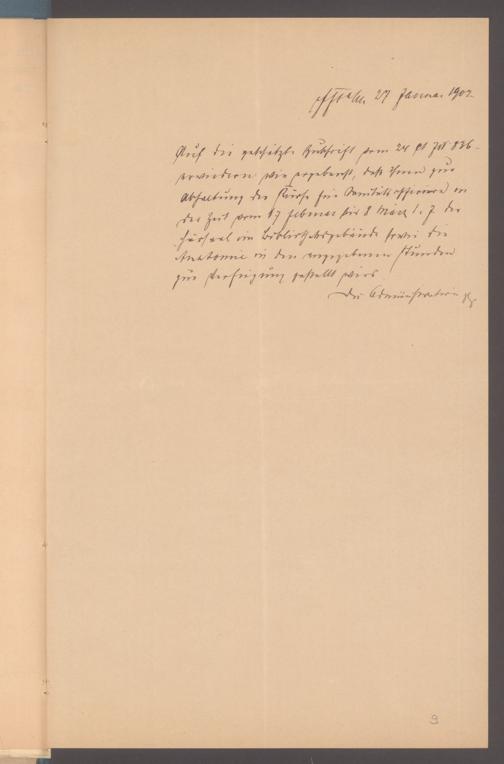 Fft a/M. 27 Januar 1902.
Auf die geschätzte Zuschrift vom 24 ds J№ 826
erwiedern wir ergebenst, daß Ihnen zur
Abhaltung des Kurses für Sanitätsoffiziere in
der Zeit vom 17 Februar bis 8 März l. J. der
Hörsaal im Bibliotheksgebäude sowie die
Anatomie in den angegebenen Stunden
zur Verfügung gestellt wird
Die Administration
9